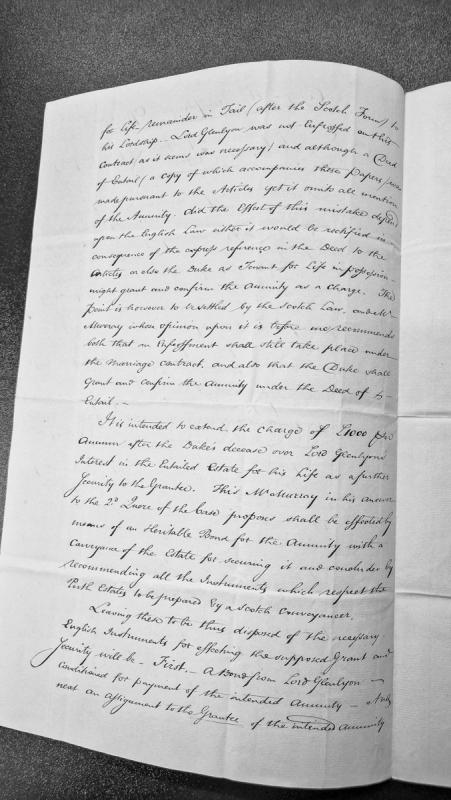 for Life remainder in Tail (after the Scotch Form) to
his Lordship. Lord Glenlyon was not Infeffed on this
Contract (as it seems was necessary) and although a Deed
of Entail (a copy of which accompanies these Papers) was
made pursuant to the Articles yet it omits all mention
of the Annuity. Did the Effect of this mistake depend
upon the English Law either it would be rectified in
consequence of the express reference in the Deed to the
Articles or else the Duke as Tenant for Life in possession
might grant and confirm the Annuity as a Charge. The
point is however to be settled by the Scotch Law, and Mr
Murray whose opinion upon it is before me recommends
both that an Infeffment shall still take place under
the Marriage Contract, and also that the Duke shall
Grant and confirm the Annuity under the Deed of
Entail. —
It is intended to extend the Charge of £1000 per
Annum after the Duke's decease over Lord Glenlyon's
Interest in the Entailed Estate for his Life as a further
Security to the Grantee. This Mr Murray in his answer
to the 2d Quere of the Case proposes shall be effected by
means of an Heritable Bond for the Annuity with a
Conveyance of the Estate for securing it and concludes by
recommending all the Instruments which respect the
Perth Estates to be prepared by a Scotch Conveyancer.
Leaving these to be thus disposed of the necessary
English Instruments for effecting the supposed Grant and
Security will be — First — A Bond from Lord Glenlyon —
Conditioned for payment of the intended Annuity —
next an assignment to the Grantee of the intended Annuity